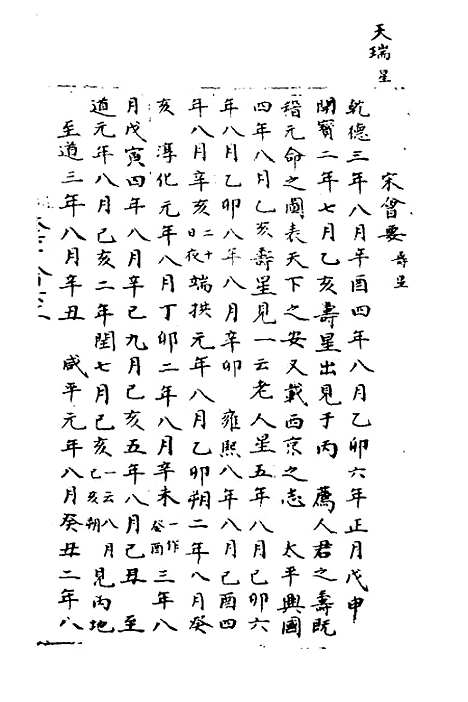 天瑞 星
宋會要 壽星
乾德三年八月辛酉四年八月乙卯六年正月戊申
開寶二年七月乙亥壽星出見于丙 薦人君之壽既
稽元命之圖表天下之安又載西京之志 太平興國
四年八月乙亥壽星見一云老人星五年八月己卯六
年八月乙卯八年八月辛卯 雍熙八年八月己酉四
年八月辛亥二十日夜端拱元年八月乙卯朔二年八月癸
亥 淳化元年八月丁卯二年八月辛未一作癸酉三年八
月戊寅四年八月辛巳九月己亥五年八月己丑 至
道元年八月己亥二年閏七月己亥一云八月己亥朔見丙地
至道三年八月辛丑 咸平元年八月癸丑二年八